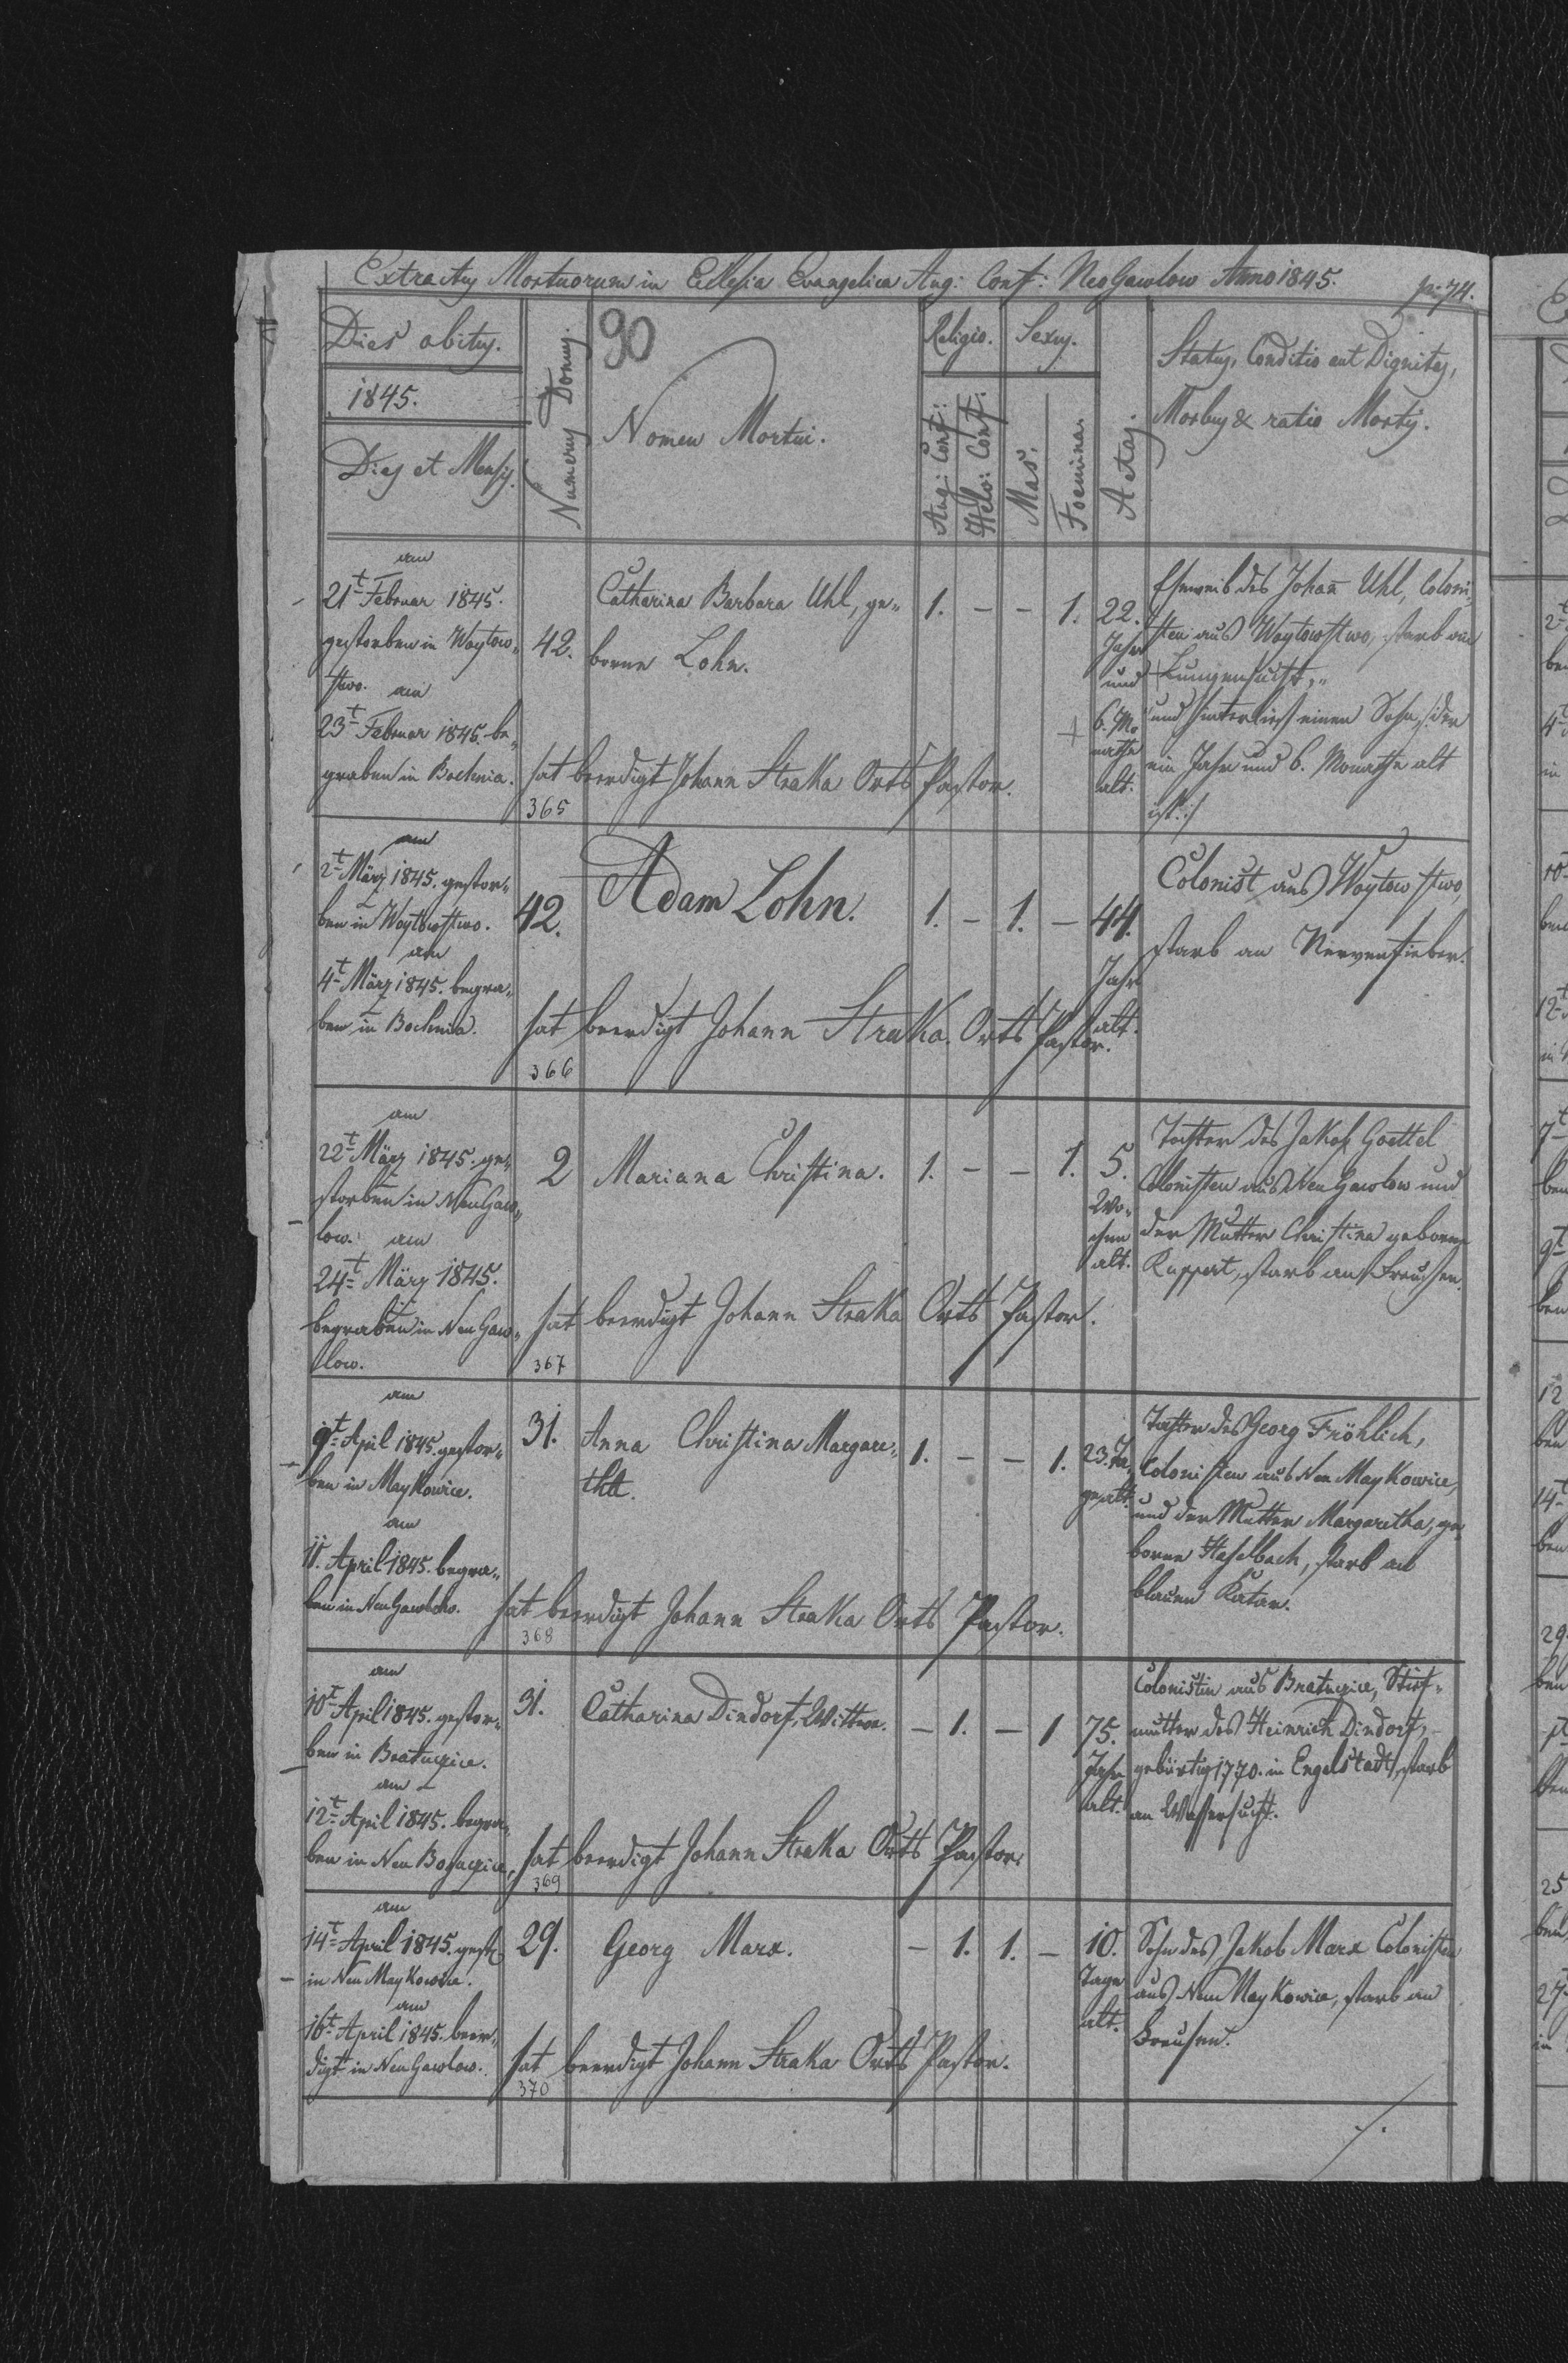 Extractus Mortuorum in Ecclesia Evangelica Aug: Conf: NeoGawlow Anno 1845.
pg: 74.
Dies obitus.
1845.
Dies et Mensis.
Numerus Domus.
90
Nomen Mortui.
Religio.
Aug: Conf:
Helv: Conf:
Sexus.
Mas.
Foemina.
Aetas.
Status, Conditio aut Dignitas,
Morbus & ratio Mortis.
am
21t Februar 1845.
gestorben in Woytow„
stwo. am
23t Februar 1845. be„
graben in Bochnia.
42.
Catharina Barbara Uhl, ge„
borne Lohn.
1. – – 1.
22.
Jahr
und
6. Mo
nathe
alt.
Eheweib des Johan̄ Uhl, Coloni„
sten aus Woytowstwo, starb an
Lungensucht,„
und hinterließ einen Sohn, der
ein Jahr und 6. Monathe alt
ist:/
hat beerdigt Johann Straka Orts Pastor.
365
am
2t März 1845. gestor„
ben in Woytowstwo.
am
4t März 1845. begra„
ben in Bochnia.
42.
Adam Lohn.
1. – 1. –
44.
Jahr
alt.
Colonist aus Woytowstwo,
starb an Nervenfieber.
hat beerdigt Johann Straka Orts Pastor.
366
am
22t März 1845. ge„
storben in NeuGaw„
low. am
24t März 1845.
begraben in Neu Gaw„
low.
2
Mariana Christina.
1. – – 1.
5.
Wo„
chen
alt.
Tochter des Jakob Goettel
Colonisten aus Neu Gawlow und
der Mutter Christina geborne
Ruppert, starb an Freusen.
hat beerdigt Johann Straka Orts Pastor.
367
am
9t April 1845. gestor„
ben in Maykowice.
am
11. April 1845. begra„
ben in NeuGawlow.
31.
Anna Christina Margare„
tha.
1. – – 1.
23. Ta„
ge alt.
Tochter des Georg Fröhlich,
Colonisten aus Neu Maykowice,
und der Mutter Margaretha, ge„
borne Haselbach, starb an
blauen Katar.
hat beerdigt Johann Straka Orts Pastor.
368
am
10t April 1845. gestor„
ben in Bratucice.
am
12t April 1845. begra„
ben in Neu Bogucice,
31.
Catharina Dindorf, Wittwe.
– 1. – 1
75.
Jahr
alt.
Colonistin aus Bratucice, Stief„
mutter des Heinrich Dindorf,
gebürtig 1770. in Engelstadt, starb
an Wassersucht.
hat beerdigt Johann Straka Orts Pastor.
369
am
14t April 1845. gest:
in Neu Maykowice.
am
16t April 1845. beer„
digt in NeuGawlow.
29.
Georg Marx.
– 1. 1. –
10.
Tage
alt.
Sohn des Jakob Marx Colonisten
aus Neu Maykowice, starb an
Freusen.
hat beerdigt Johann Straka Orts Pastor.
370